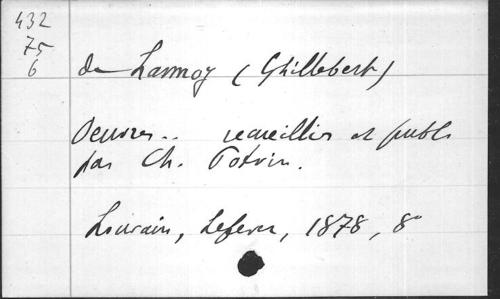 432
75
6
de Lannoy (Ghillebert)
Oeuvres.. recueillies et publ.
par Ch. Potvin.
Louvain, Lefever, 1878, 8°